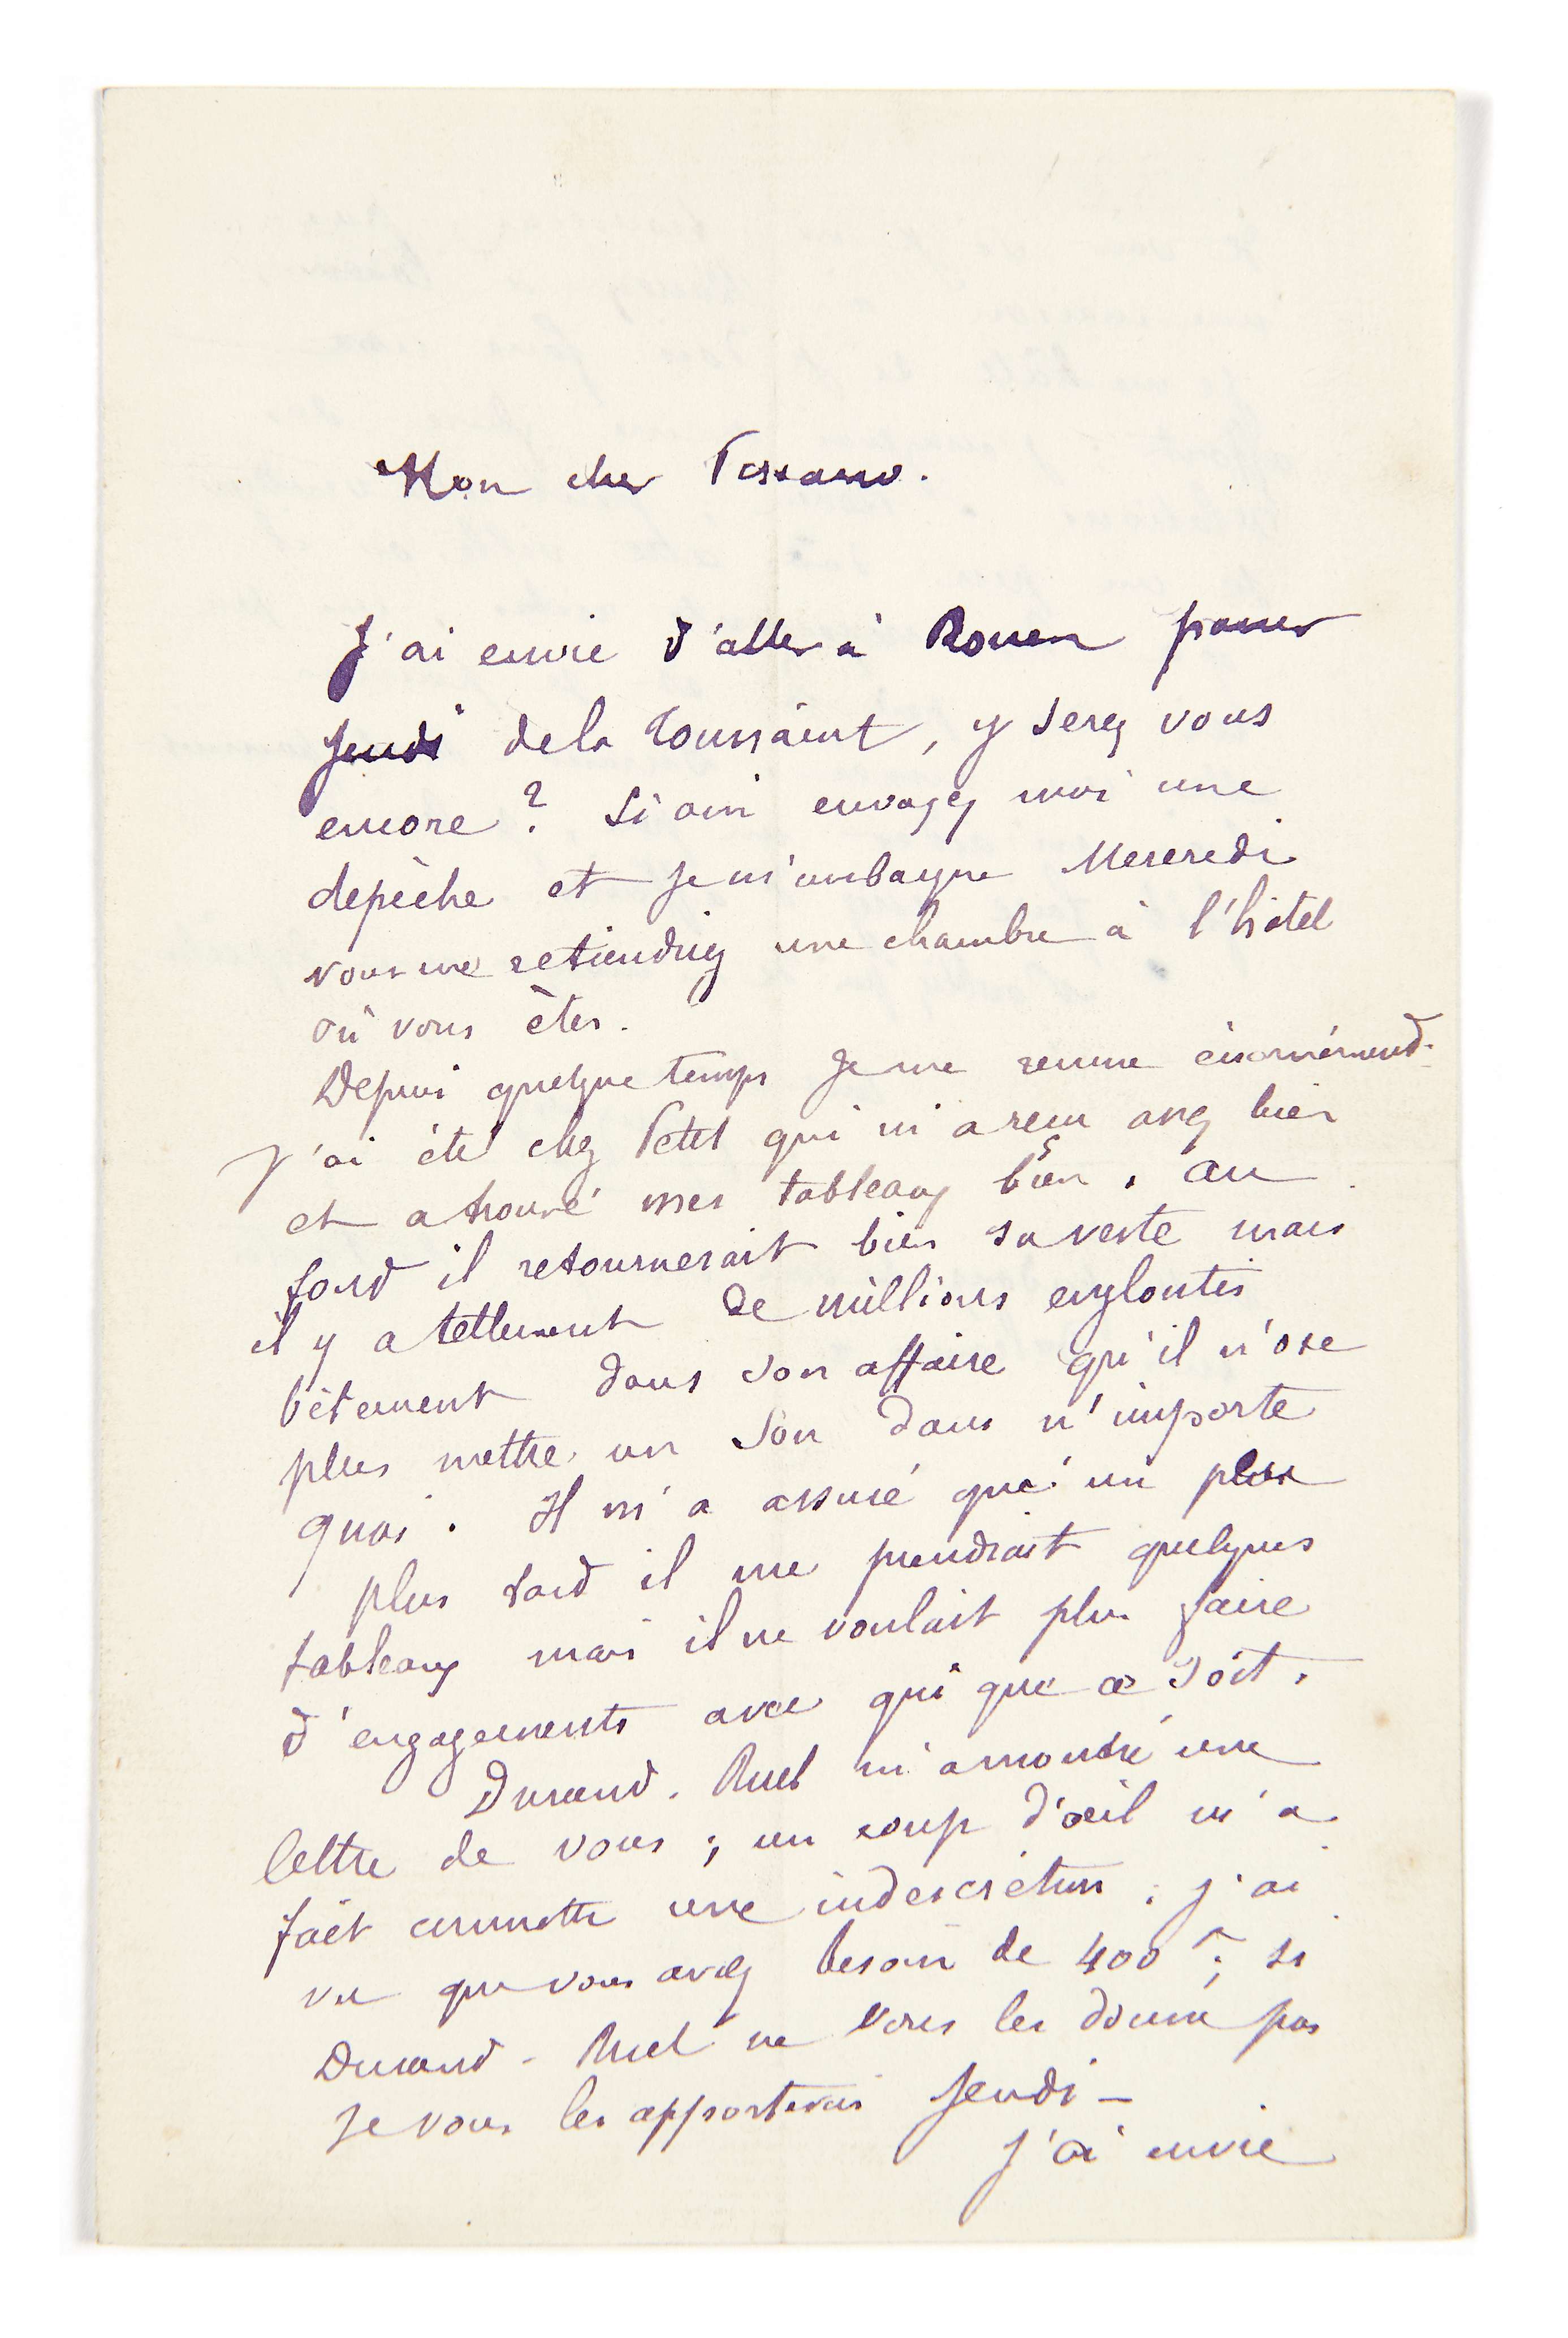 Mon cher Pissarro.
J'ai envie d'aller à Rouen passer
Jeudi de la Toussaint, y serez vous
encore ? Si oui envoyez moi une
depèche et je m'embarque Mercredi
vous me retiendriez une chambre à l'hôtel
où vous êtes.
Depuis quelque temps je me remue énormément.
J'ai été chez Petit qui m'a reçu assez bien
et a trouvé mes tableaux bien. au
fond il retournerait bien sa veste mais
il y a tellement de millions engloutis
bêtement dans son affaire qu'il n'ose
plus mettre un sou dans n'importe
quoi. Il m'a assuré qu'un peu
plus tard il me prendrait quelques
tableaux mais il ne voulait plus faire
d'engagements avec qui que ce soit.
Durand-Ruel m'a montré une
lettre de vous ; un coup d'œil m'a
fait commettre une indiscrétion. j'ai
vu que vous avez besoin de 400 f ; si
Durand-Ruel ne vous les donne pas
je vous les apporterai Jeudi —
J'ai envie